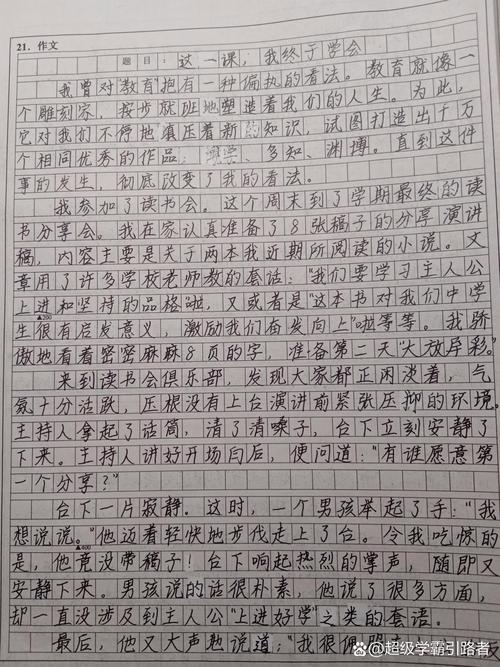 21. 作文
题目：这一课，我终于学会
我曾对"教育"抱有一种偏执的看法。教育就像一
个雕刻家，按步就班地塑造着我们的人生。为此，
它对我们不停地填压着新的知识，试图打造出千万
个相同优秀的作品：博学、多知、渊博。直到这件
事的发生，彻底改变了我的看法。
我参加了读书会。这个周末到了学期最终的读
书分享会。我在家认真准备了8张稿子的分享演讲
稿，内容主要是关于两本我近期所阅读的小说。文
章用了许多学校老师教的套话："我们要学习主人公
上进和坚持的品格"啦，又或者是"这本书对我们中学
▲200
生很有启发意义，激励我们奋发向上"啦等等。我骄
傲地看着密密麻麻8页的字，准备第二天"大放异彩"。
来到读书会俱乐部，发现大家都正闲谈着，气
氛十分活跃，压根没有上台演讲前紧张压抑的环境。
主持人拿起了话筒，清了清嗓子，台下立刻安静了
下来。主持人讲好开场白后，便问道："有谁愿意第
一个分享？"
台下一片寂静。这时，一个男孩举起了手："我
想说说。"他迈着轻快地步伐走上了台。令我吃惊的
▲400
是，他竟没带稿子！台下响起热烈的掌声，随即又
安静下来。男孩说的话很朴素，他说了很多方面，
却一直没涉及到主人公"上进好学"之类的套语。
最后，他又大声地说道："我很佩服
@超级学霸引路者